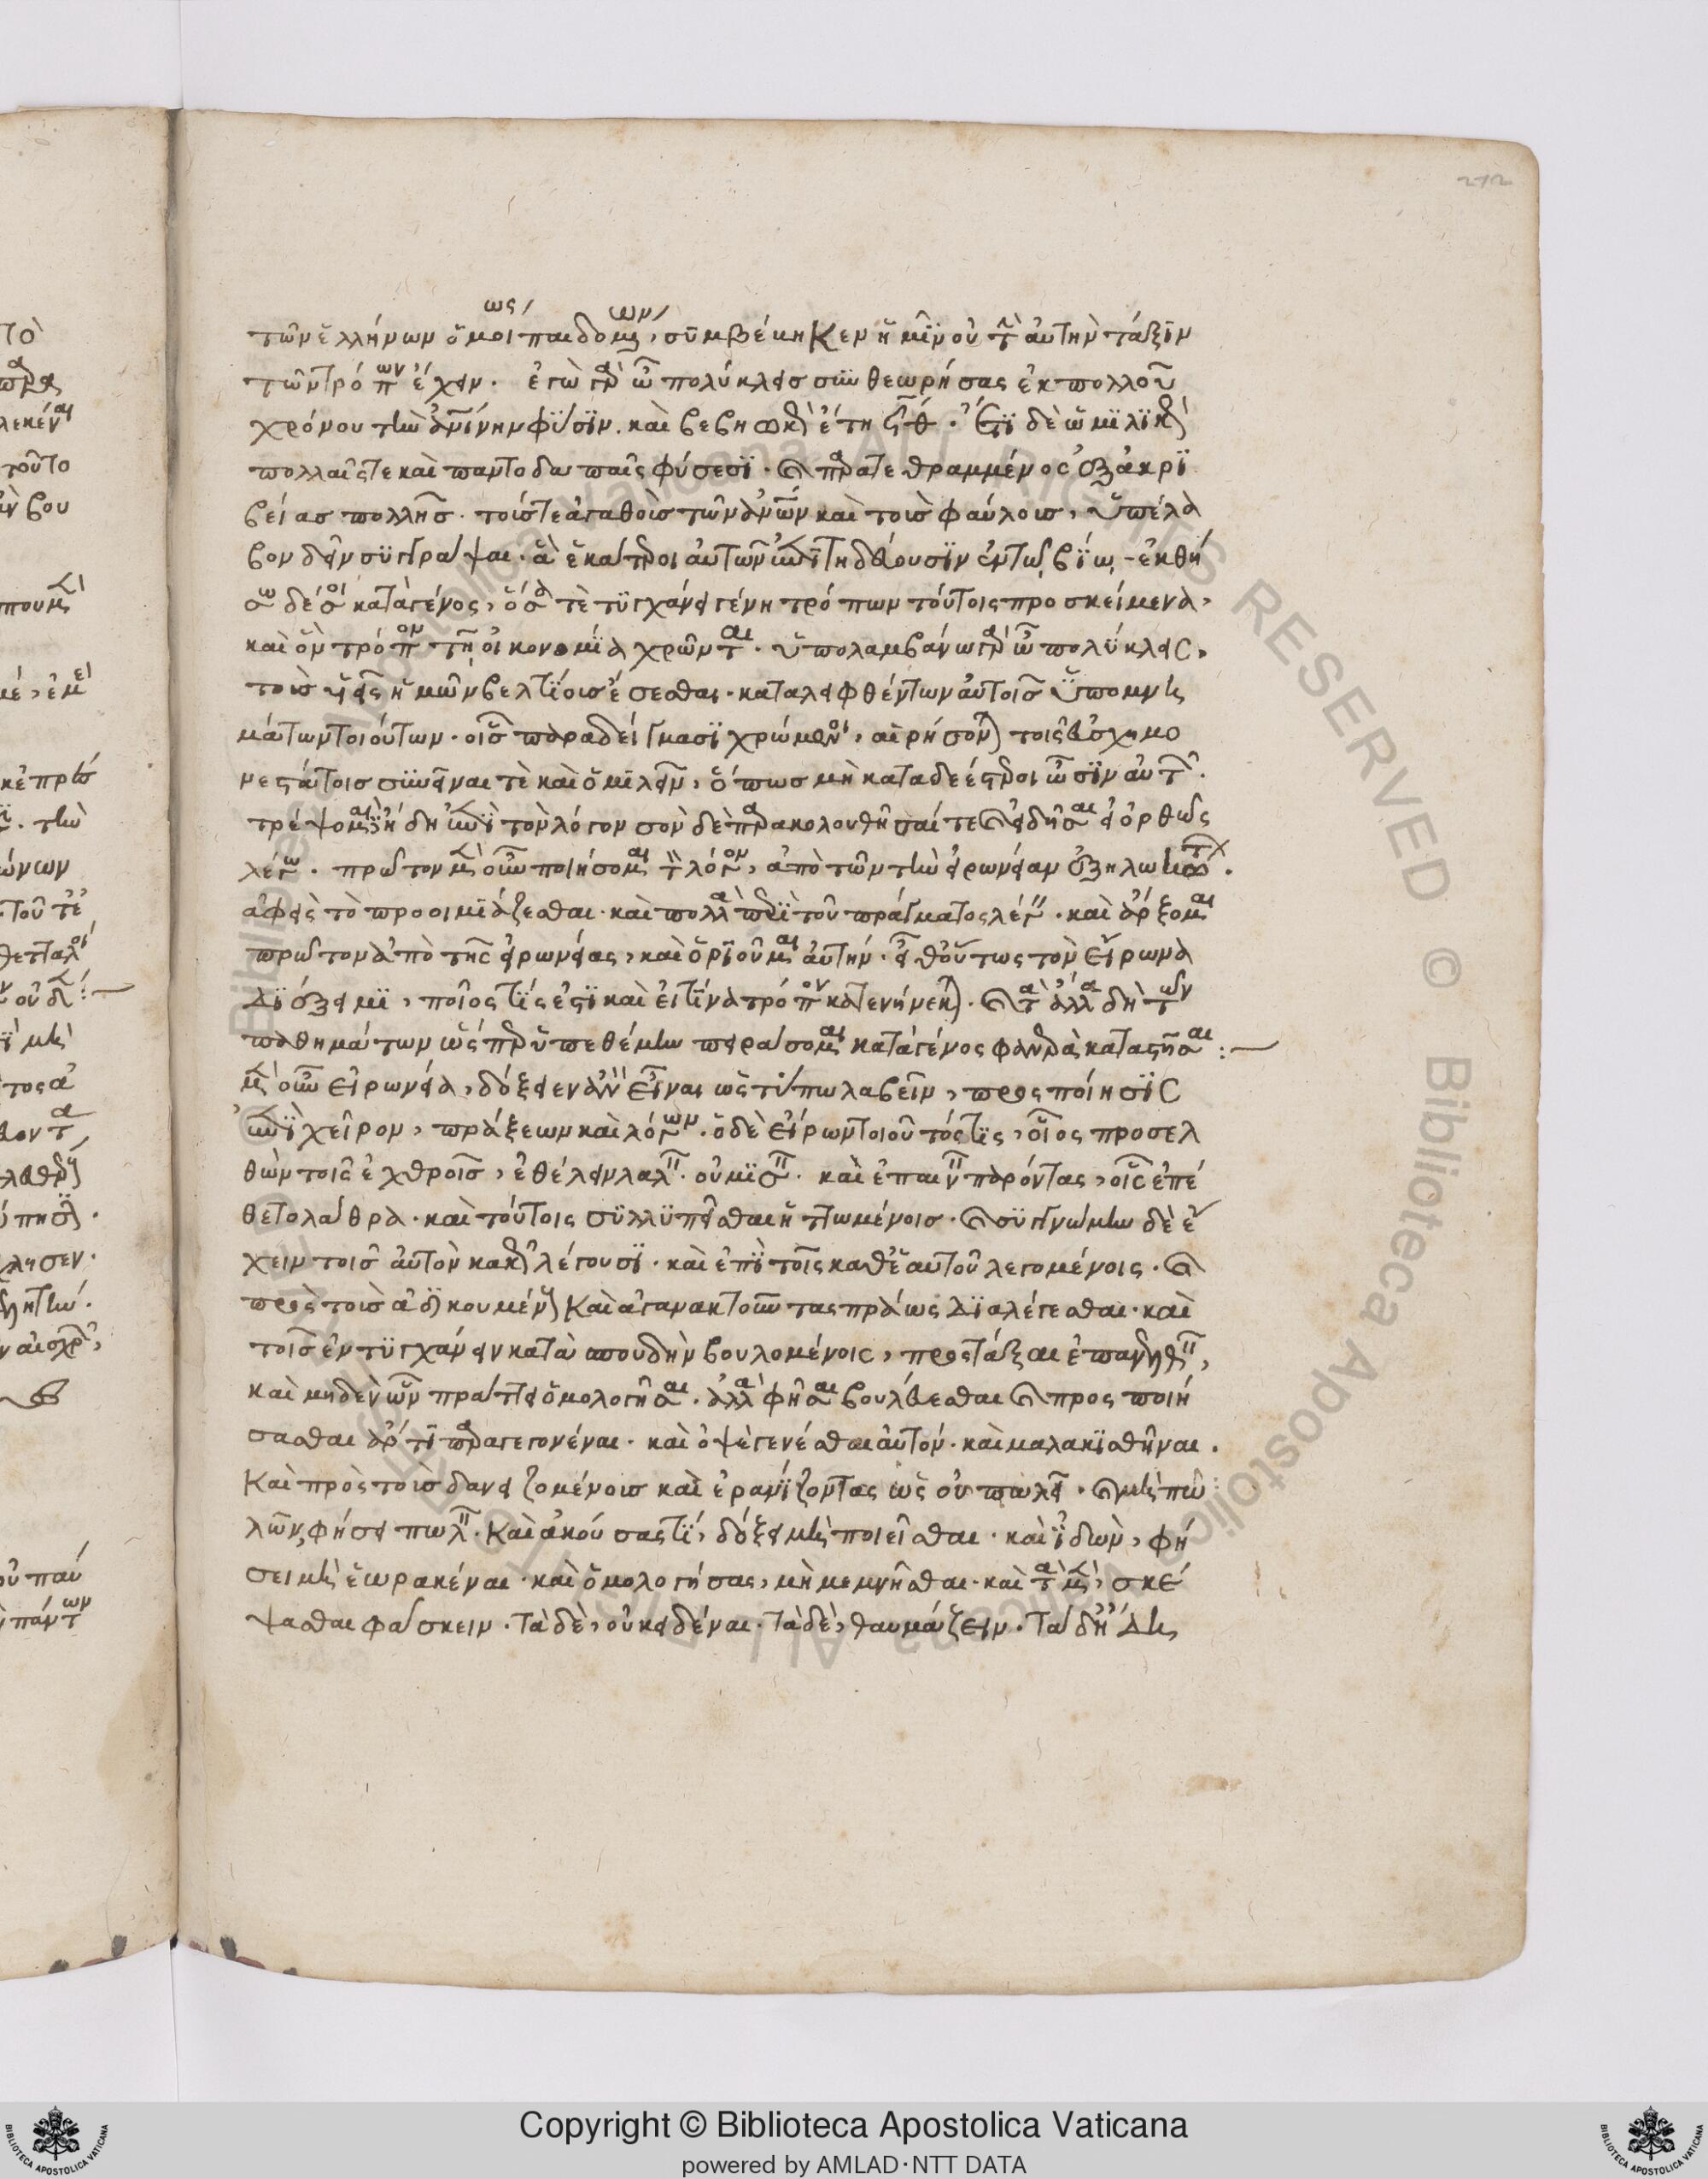 272
τῶν ἑλλήνων ὁμοίως παιδευομένων, συμβέβηκεν ἡμῖν οὐ τὴν αὐτὴν τάξιν
τῶν τρόπων ἔχειν. ἐγὼ γὰρ ὦ πολύκλεις συνθεωρήσας ἐκ πολλοῦ
χρόνου τὴν ἀνθρωπίνην φύσιν. καὶ βεβιωκὼς ἔτη ϟθ. ἔτι δὲ ὡμιληκὼς
πολλαῖς τε καὶ παντοδαπαῖς φύσεσι. καὶ παρατεθραμμένος ἐξ ἀκρι
βείας πολλῆς. τούς τε ἀγαθοὺς τῶν ἀνθρώπων καὶ τοὺς φαύλους, ὑπέλα
βον δεῖν συγγράψαι. ἃ ἑκάτεροι αὐτῶν ἐπιτηδεύουσιν ἐν τῷ βίῳ - ἐκθή
σω δέ σοι κατὰ γένος, ὅσα τὲ τυγχάνει γένη τρόπων τούτοις προσκείμενα,
καὶ ὃν τρόπον τῇ οἰκονομίᾳ χρῶνται. ὑπολαμβάνω γὰρ ὦ πολύκλεις,
τοὺς υἱεῖς ἡμῶν βελτίους ἔσεσθαι. καταλειφθέντων αὐτοῖς ὑπομνη
μάτων τοιούτων. οἷς παραδείγμασι χρώμενοι, αἱρήσονται τοῖς εὐσχημο
νεστάτοις συνεῖναι τὲ καὶ ὁμιλεῖν, ὅπως μὴ καταδεέστεροι ὦσιν αὐτῶν.
τρέψομαι δὲ ἤδη ἐπὶ τὸν λόγον σὸν δὲ παρακολουθῆσαί τε καὶ εἰδῆσαι εἰ ὀρθῶς
λέγω. πρῶτον μὲν οὖν ποιήσομαι τὸν λόγον, ἀπὸ τῶν τὴν εἰρωνείαν ἐζηλωκότων.
ἀφεὶς τὸ προοιμιάζεσθαι. καὶ πολλὰ περὶ τοῦ πράγματος λέγειν. καὶ ἄρξομαι
πρῶτον ἀπὸ τῆς εἰρωνείας, καὶ ὁριοῦμαι αὐτήν. εἶθ οὕτως τὸν εἴρωνα
διέξειμι, ποῖός τίς ἐστι καὶ εἰς τίνα τρόπον κατενήνεκται. καὶ τὰ ἄλλα δὴ τῶν
παθημάτων ὥσπερ ὑπεθέμην πειράσομαι κατὰ γένος φανερὰ καταστῆσαι :—
μὲν οὖν εἰρωνεία, δόξειεν ἂν εἶναι ὡς τύπῳ λαβεῖν, προσποίησις
ἐπὶ χεῖρον, πράξεων καὶ λόγων. ὁ δὲ εἴρων τοιοῦτός τις, οἷος προσελ
θὼν τοῖς ἐχθροῖς, ἐθέλειν λαλεῖν. οὐ μισεῖν. καὶ ἐπαινεῖν παρόντας, οἷς ἐπέ
θετο λάθρα. καὶ τούτοις συλλυπεῖσθαι ἡττωμένοις. καὶ συγγνώμην δὲ ἔ
χειν τοῖς αὐτὸν κακῶς λέγουσι. καὶ ἐπὶ τοῖς καθ ἑαυτοῦ λεγομένοις. καὶ
πρὸς τοὺς ἀδικουμένους καὶ ἀγανακτοῦντας πράως διαλέγεσθαι. καὶ
τοῖς ἐντυγχάνειν κατὰ σπουδὴν βουλομένοις, προστάξαι ἐπανελθεῖν,
καὶ μηδὲν ὧν πράττει ὁμολογῆσαι. ἀλλὰ φῆσαι βουλεύεσθαι καὶ προσποιή
σασθαι ἄρτι παραγεγονέναι. καὶ ὀψὲ γενέσθαι αὐτόν. καὶ μαλακισθῆναι.
Καὶ πρὸς τοὺς δανειζομένους καὶ ἐρανίζοντας ὡς οὐ πωλεῖ. καὶ μὴ πω
λῶν, φήσει πωλεῖν. Καὶ ἀκούσας τί, δόξει μὴ ποιεῖσθαι. καὶ ἰδὼν, φή
σει μὴ ἑωρακέναι. καὶ ὁμολογήσας, μὴ μεμνῆσθαι. καὶ τὰ μὲν, σκέ
ψασθαι φάσκειν. Τὰ δὲ, οὐκ εἰδέναι. τὰ δὲ, θαυμάζειν. Τὰ δ ἤδη
Copyright © Biblioteca Apostolica Vaticana
powered by AMLAD·NTT DATA